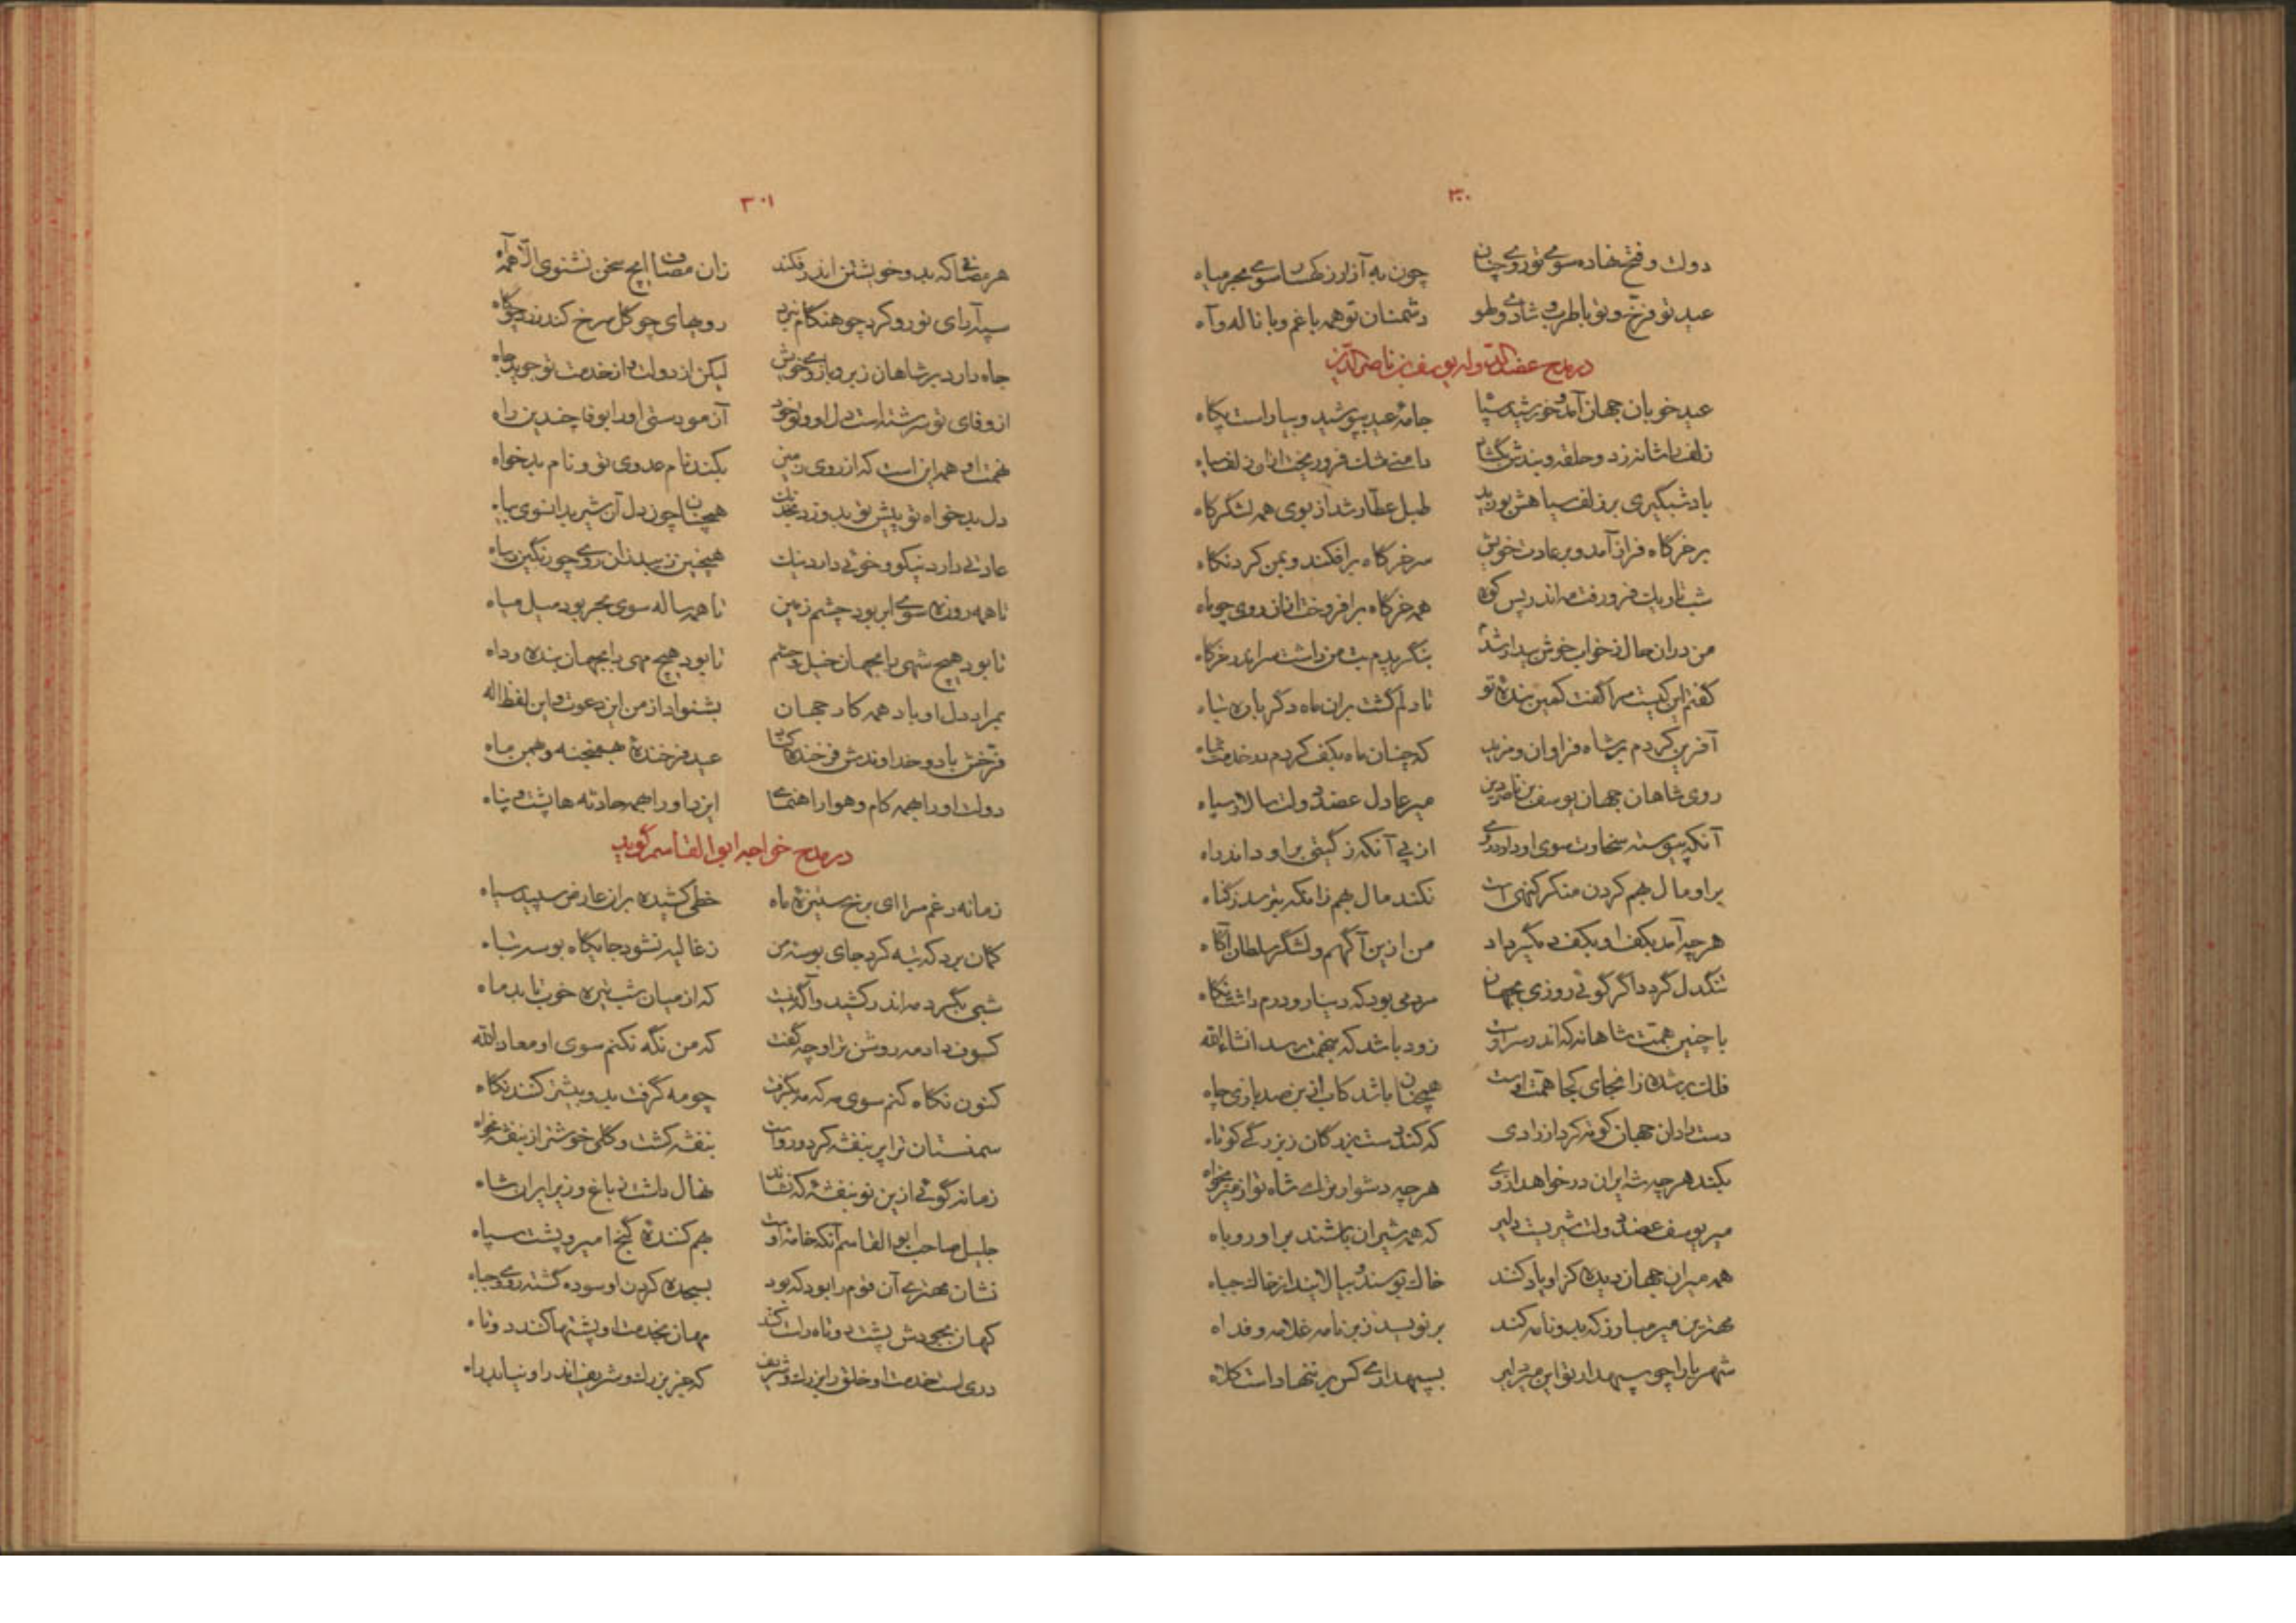 ۳۰۰
دولت و فتح نهاده سوی تو روی چنان چون به آزار ز کهسار سوی بحر میاه
عید تو فرخ و تو با طرب و شادی و لهو دشمنان تو همه با غم و با ناله و آه
در مدح عضدالدوله یوسف بن ناصرالدین
عید خوبان جهان آمد و خورشید سپاه جامهٔ عید بپوشید و بیاراست پگاه
زلف را شانه زد و حلقه و بندش بگشاد دامنی مشک فرو ریخت ازان زلف سیاه
باد شبگیری بر زلف سیاهش بوزید طبل عطار شد از بوی همه لشگرگاه
بر خرگاه فراز آمد و بر عادت خویش سر خرگاه برافکند و بمن کرد نگاه
شب تاریک فرو رفته مه اندر پس کوه همه خرگاه برافروخت ازان روی چو ماه
من دران حال ز خواب خوش بیدار شدم بنگریدم بت من داشت سر اندر خرگاه
گفتم این کیست مرا گفت کمین بندهٔ تو تا دلم گشت بران ماه دگر باره تباه
آفرین کردم بر شاه فراوان و مزید که چنان ماه بکف کردم در خدمت شاه
روی شاهان جهان یوسف بن ناصر دین میر عادل عضد دولت سالار سپاه
آنکه پیوسته سخاوت سوی او دارد روی از پی آنکه ز گیتی بر او داند راه
بر او مال بهم کردن منکر گنهی است نکند مال بهم زانکه بترسد ز گناه
هر چه آمد بکف او بکف دیگر داد من ازین آگهم و لشگر سلطان آگاه
تنگدل گردد اگر گوئی روزی بجهان مردمی بود که دینار و درم داشت نگاه
با چنین همت شاهانه که اندر سر اوست زود باشد که بنهمت برسد انشاءالله
فلک بر شده زانجای کجا همت اوست همچنان باشد کاب از بن صد بازی چاه
دست رادان جهان کوته کرد از رادی که کند دست بزرگان ز بزرگی کوتاه
بکند هر چه شه ایران در خواهد ازوی هر چه دشوارترک شاه تو از میر بخواه
میر یوسف عضد دولت شیریست دلیر که همه شیران باشند بر او روباه
همه میران جهان دیده کز او یاد کنند خاک بوسند و بیالایند از خاک جباه
مهترین میر مبارز که بدو نامه کند بر نویسد ز بر نامه غلامه و فداه
شهریارا چو سپهدار تو این میر دلیر بسپهداری کس بر ننهاد است کلاه
۳۰۱
هر مصافی که بدو خویشتن اندر فکند زان مصاف ایچ سخن نشنوی الا همه آه
سپه آرای تو رو کرد چو هنگام نبرد رویهای چو گل سرخ کند زرد چو کاه
جاه دارد بر شاهان ز بر و بازوی خویش لیکن از دولت و از خدمت تو جوید جاه
از وفای تو سرشته است دل او و تو خود آزمودستی او را بوفا چندین راه
نهمت او همه این است که از روی زمین بکند نام عدوی تو و نام بدخواه
دل بدخواه تو پیش تو بدوزد بخدنگ همچنان چون دل آن شیر بدانسوی بیاه
عادتی دارد نیکو و خوئی دارد نیک همچنین زیبد زان روی چو رنگین دیباه
تا همه روزه سوی ابر بود چشم زمین تا همه ساله سوی بحر بود میل میاه
تا بود هیچ شهی را بجهان خیل و حشم تا بود هیچ مهی را بجهان بنده و داه
بمراد دل او باد همه کار جهان بشنواد از من این دعوت و این لفظ اله
فرخش باد و خداوندش فرخنده کناد عید فرخندهٔ بهمنجنه و بهمن ماه
دولت او را همه کام و هوا راهنمای ایزد او را همه حادثه ها پشت و پناه
در مدح خواجه ابوالقاسم گوید
زمانه رغم مرا ای برخ ستیزهٔ ماه خطی کشیده بران عارض سپید سیاه
گمان برد که تبه کرد جای بوسهٔ من ز غالیه نشود جایگاه بوسه تباه
شبی بگرد مه اندر کشید و آگه نیست که از میان شب تیره خوب تابد ماه
کسوف داد مه روشن ترا و چه گفت که من نگه نکنم سوی او معاذالله
کنون نگاه کنم سوی مه که مه بگرفت چو مه گرفت بدو بیشتر کنند نگاه
سمنستان ترا پر بنفشه کرد و رواست بنفشه کشت و گلی خوشتر از بنفشه مخواه
زمانه گوئی ازین نو بنفشهٔ که نشاند نهال داشت ز باغ وزیر ایران شاه
جلیل صاحب ابوالقاسم آنکه خامهٔ اوست بهم کنندهٔ گنج امیر و پشت سپاه
نشان مهتری آن قوم را بود که بود بسجده کردن او سوده گشته روی و جباه
کهان بجودش پشت دوتاه راست کنند مهان بخدمت او پشتها کنند دوتاه
دری است خدمت او خلق را بزرگ و شریف که جز بزرگ و شریف اندر او نیابد راه